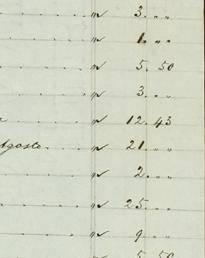 " 3. " "
" 1. " "
" 5. 50
" 3. " "
" 12. 43
Agosto " 21. " "
" 2. " "
" 25. " "
" 9. " "
" 5. 50